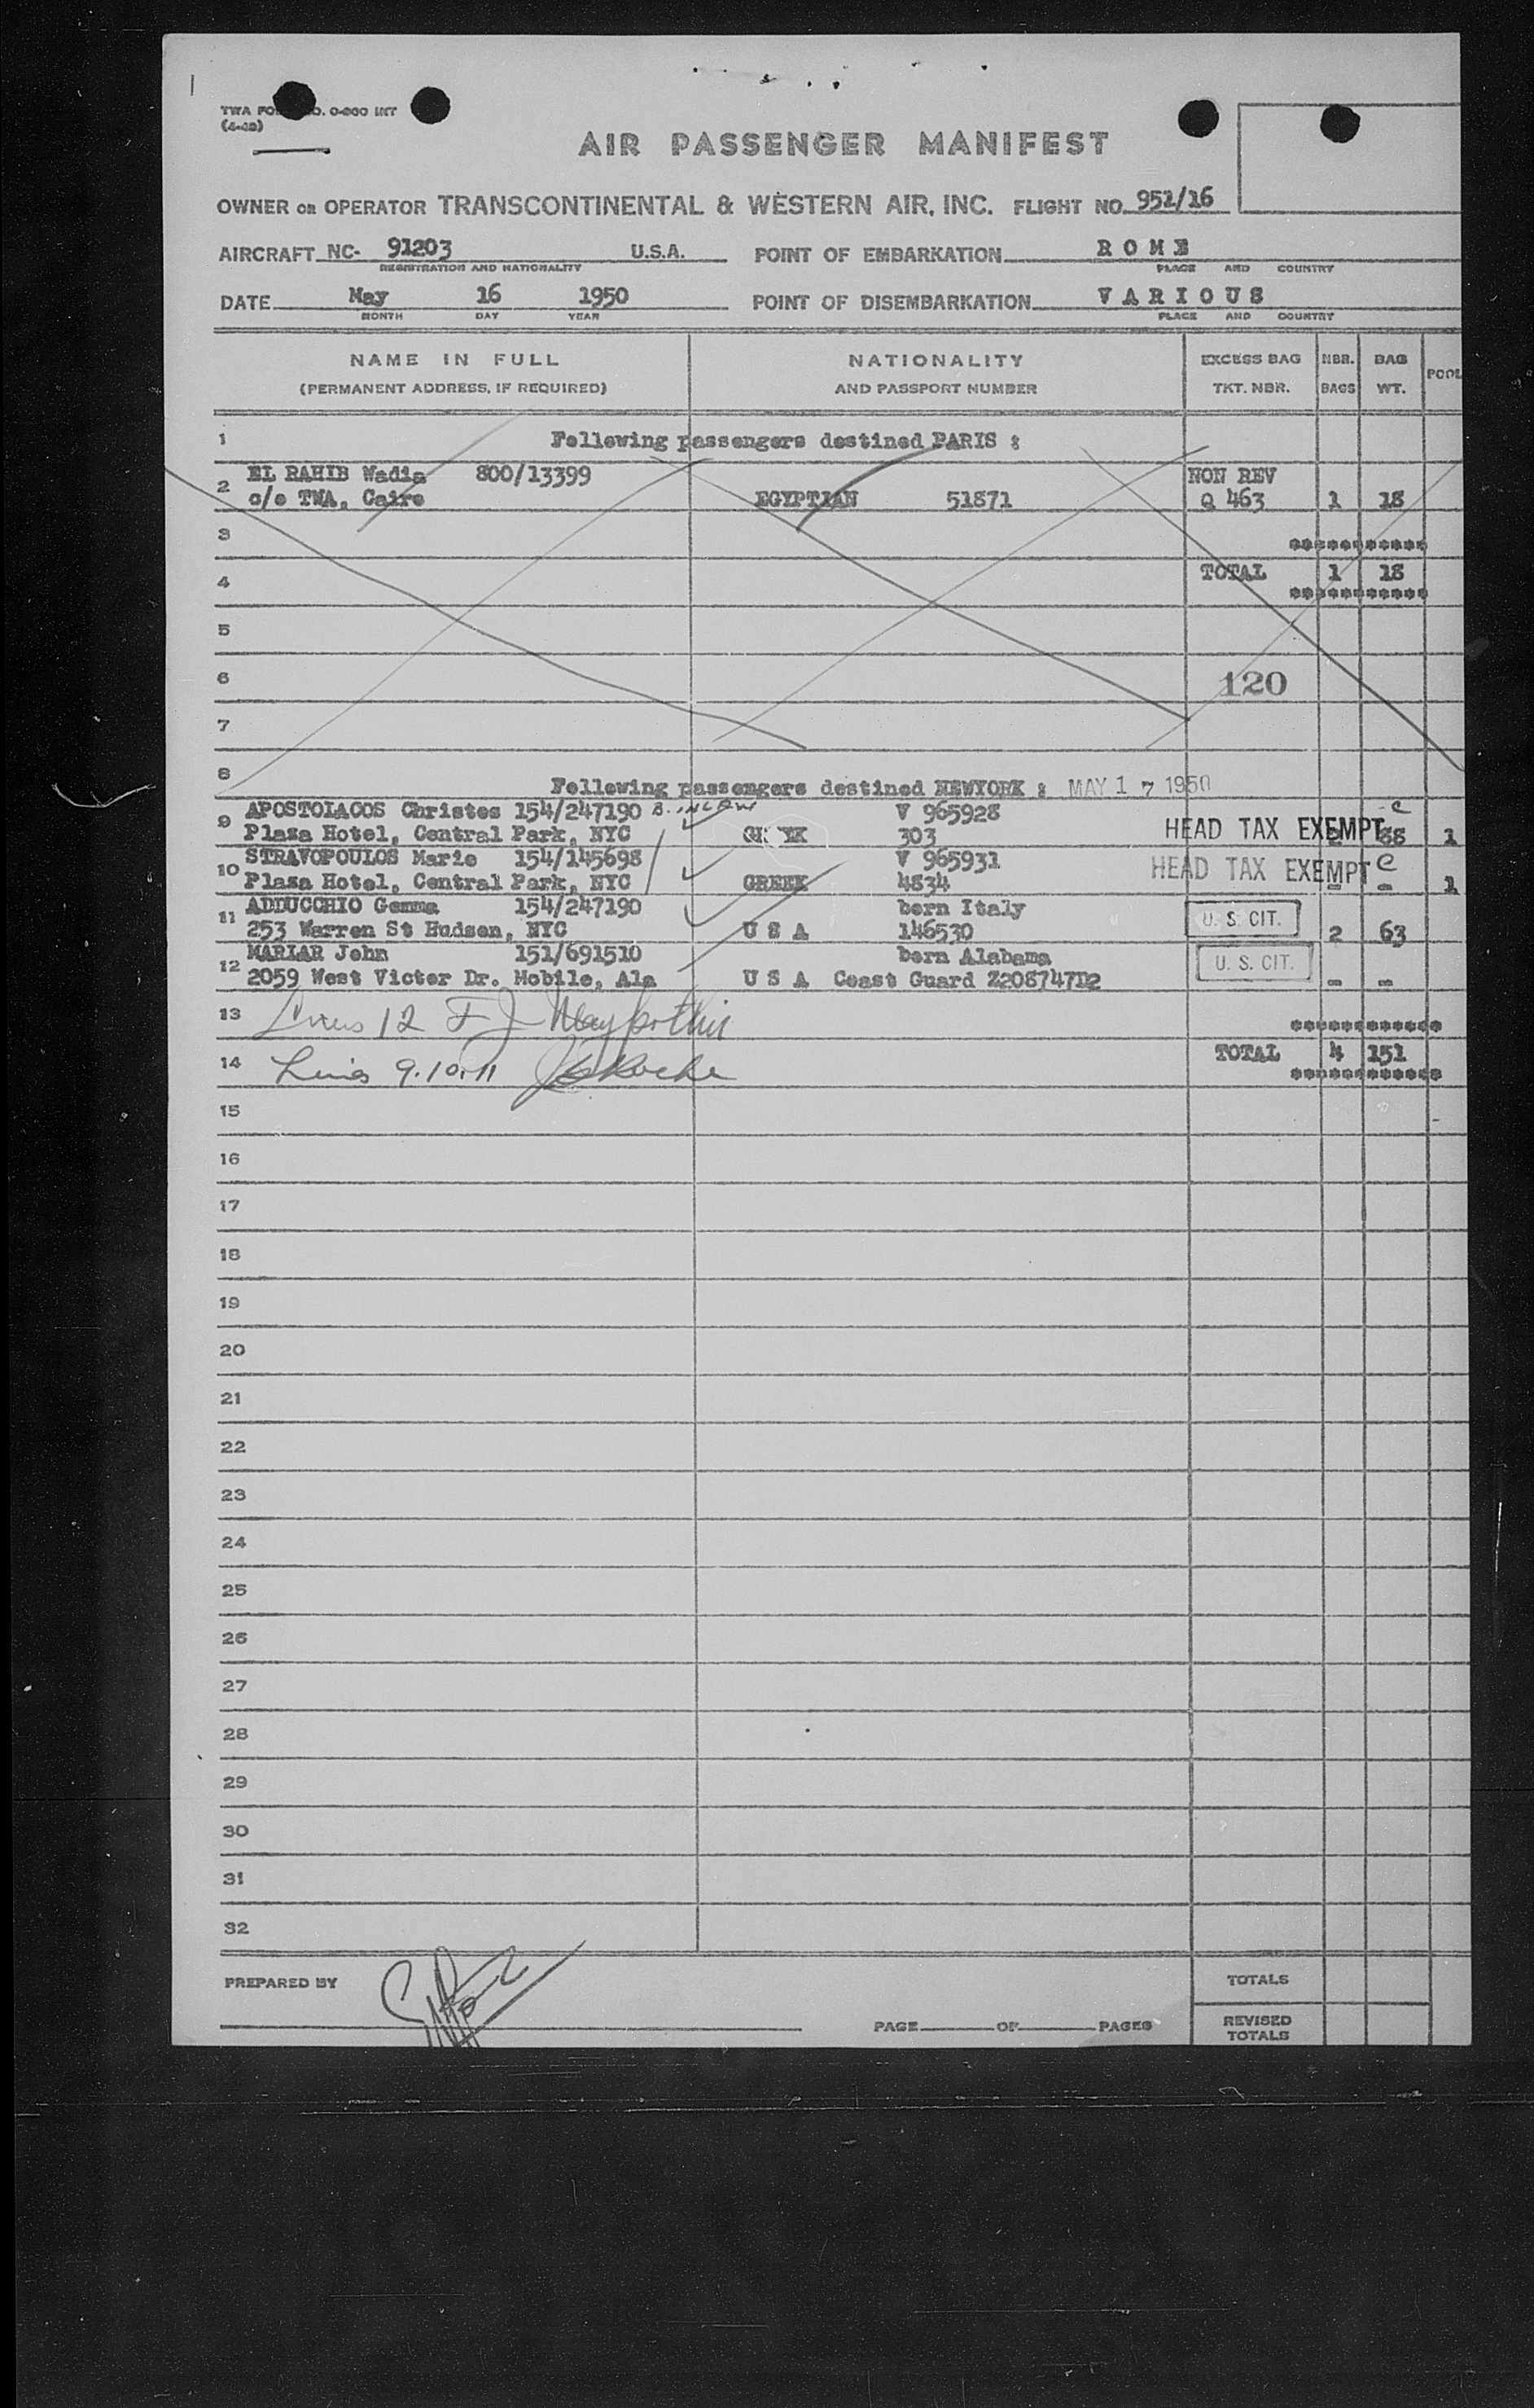 TWA FO D. 0-800 INT
(4-48)
AIR PASSENGER MANIFEST
OWNER OR OPERATOR TRANSCONTINENTAL & WESTERN AIR, INC. FLIGHT NO. 952/16
AIRCRAFT NC- 91203 U.S.A. POINT OF EMBARKATION R O M E
REGISTRATION AND NATIONALITY PLACE AND COUNTRY
DATE May 16 1950 POINT OF DISEMBARKATION V A R I O U S
MONTH DAY YEAR PLACE AND COUNTRY
NAME IN FULL NATIONALITY EXCESS BAG NBR. BAG POOL
(PERMANENT ADDRESS, IF REQUIRED) AND PASSPORT NUMBER TKT. NBR. BAGS WT.
1 Following passengers destined PARIS :
EL RAHIB Wadia 800/13399 NON REV
2 c/o TWA, Cairo EGYPTIAN 51871 Q 463 1 18
3 ************
4 TOTAL 1 18
************
5
6 120
7
8 Following passengers destined NEWYORK : MAY 17 1950
APOSTOLACOS Christos 154/247190 V 965928 C
9 Plaza Hotel, Central Park, NYC GREEK 303 HEAD TAX EXEMPT 2 88 1
STRAVOPOULOS Marie 154/145698 V 965931 C
10 Plaza Hotel, Central Park, NYC GREEK 4834 HEAD TAX EXEMPT - - 1
ADDUCCHIO Gemma 154/247190 born Italy
11 253 Warren St Hudson, NYC U S A 146530 U. S. CIT. 2 63
MARIAR John 151/691510 born Alabama
12 2059 West Victor Dr. Mobile, Ala U S A Coast Guard Z208747D2 U. S. CIT. - -
13 Lines 12 F J ************
14 Lines 9.10.11 TOTAL 4 151
************
15
16
17
18
19
20
21
22
23
24
25
26
27
28
29
30
31
32
PREPARED BY TOTALS
PAGE OF PAGES REVISED
TOTALS